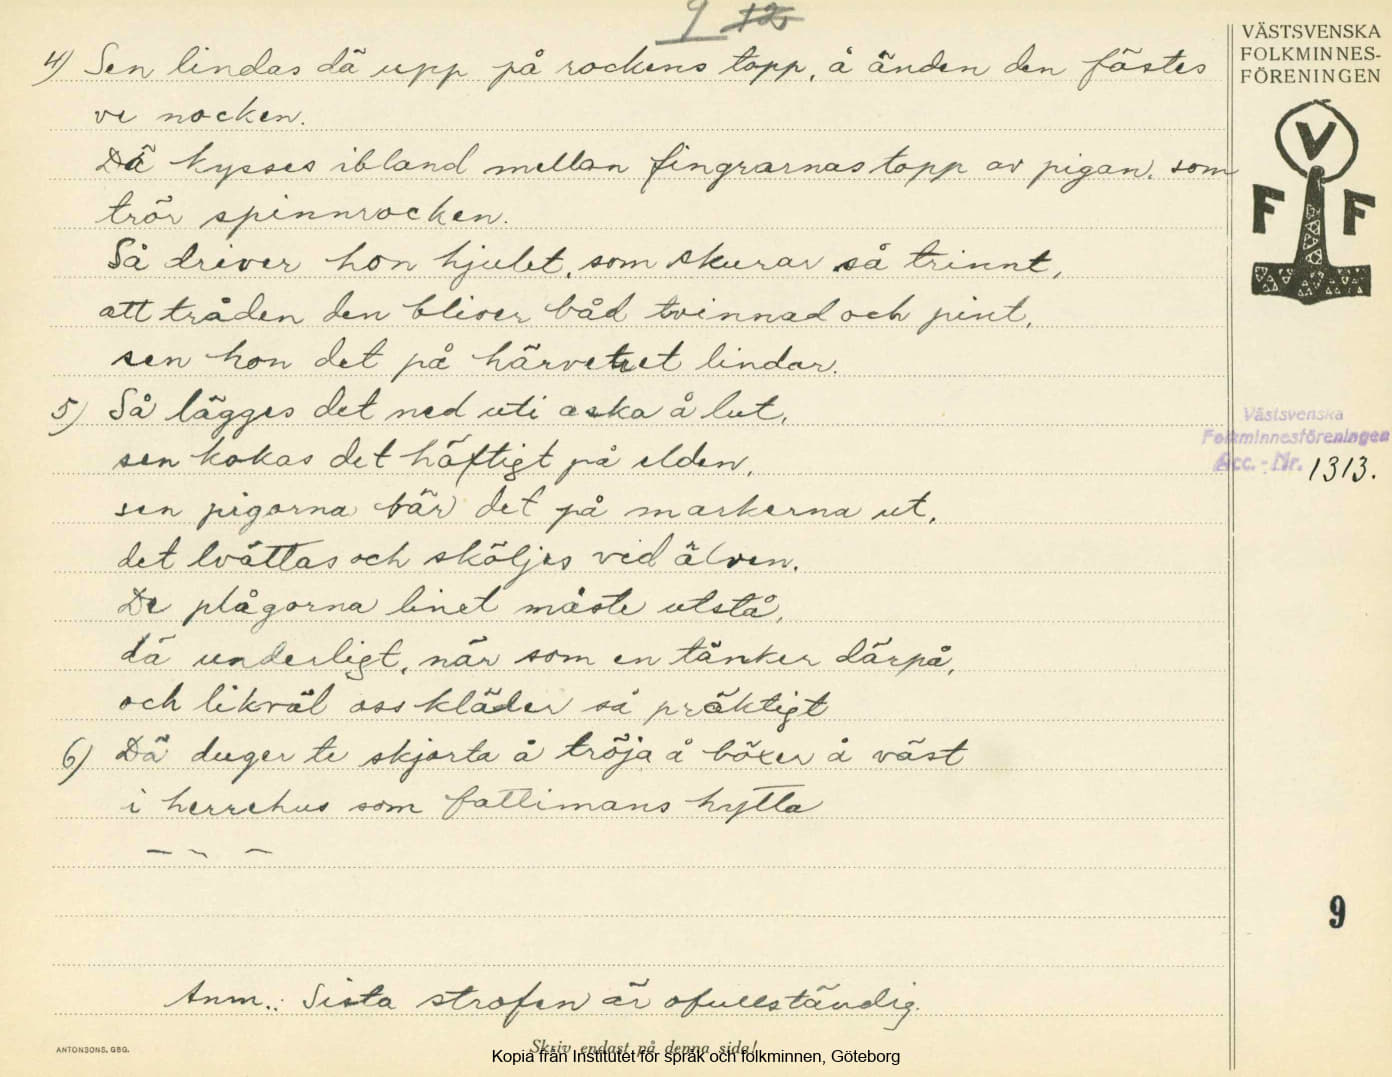 9 12
VÄSTSVENSKA
FOLKMINNES-
FÖRENINGEN
V
F F
4) Sen lindas dä upp på rockens topp, å änden den fästes
ve nocken.
Dä kysses ibland mellan fingrarnas topp av pigan, som
trör spinnrocken.
Så driver hon hjulet, som skurar så trinnt,
att tråden den bliver båd tvinnad och pint,
sen hon det på härveträet lindar.
5) Så lägges det ned uti aska å lut,
sen kokas det häftigt på elden,
sen pigorna bär det på markerna ut,
det tvättas och sköljes vid älven.
De plågorna linet måste utstå,
dä underligt, när som en tänker därpå,
och likväl oss kläder så präktigt
6) Dä duger te skjorta å tröja å böxer å väst
i herrehus som fattimans hytta
— — —
Anm.: Sista strofen är ofullständig.
Västsvenska
Folkminnesföreningen
Acc. - Nr. 1313.
9
ANTONSONS, GBG.
Skriv endast på denna sida!
Kopia från Institutet för språk och folkminnen, Göteborg